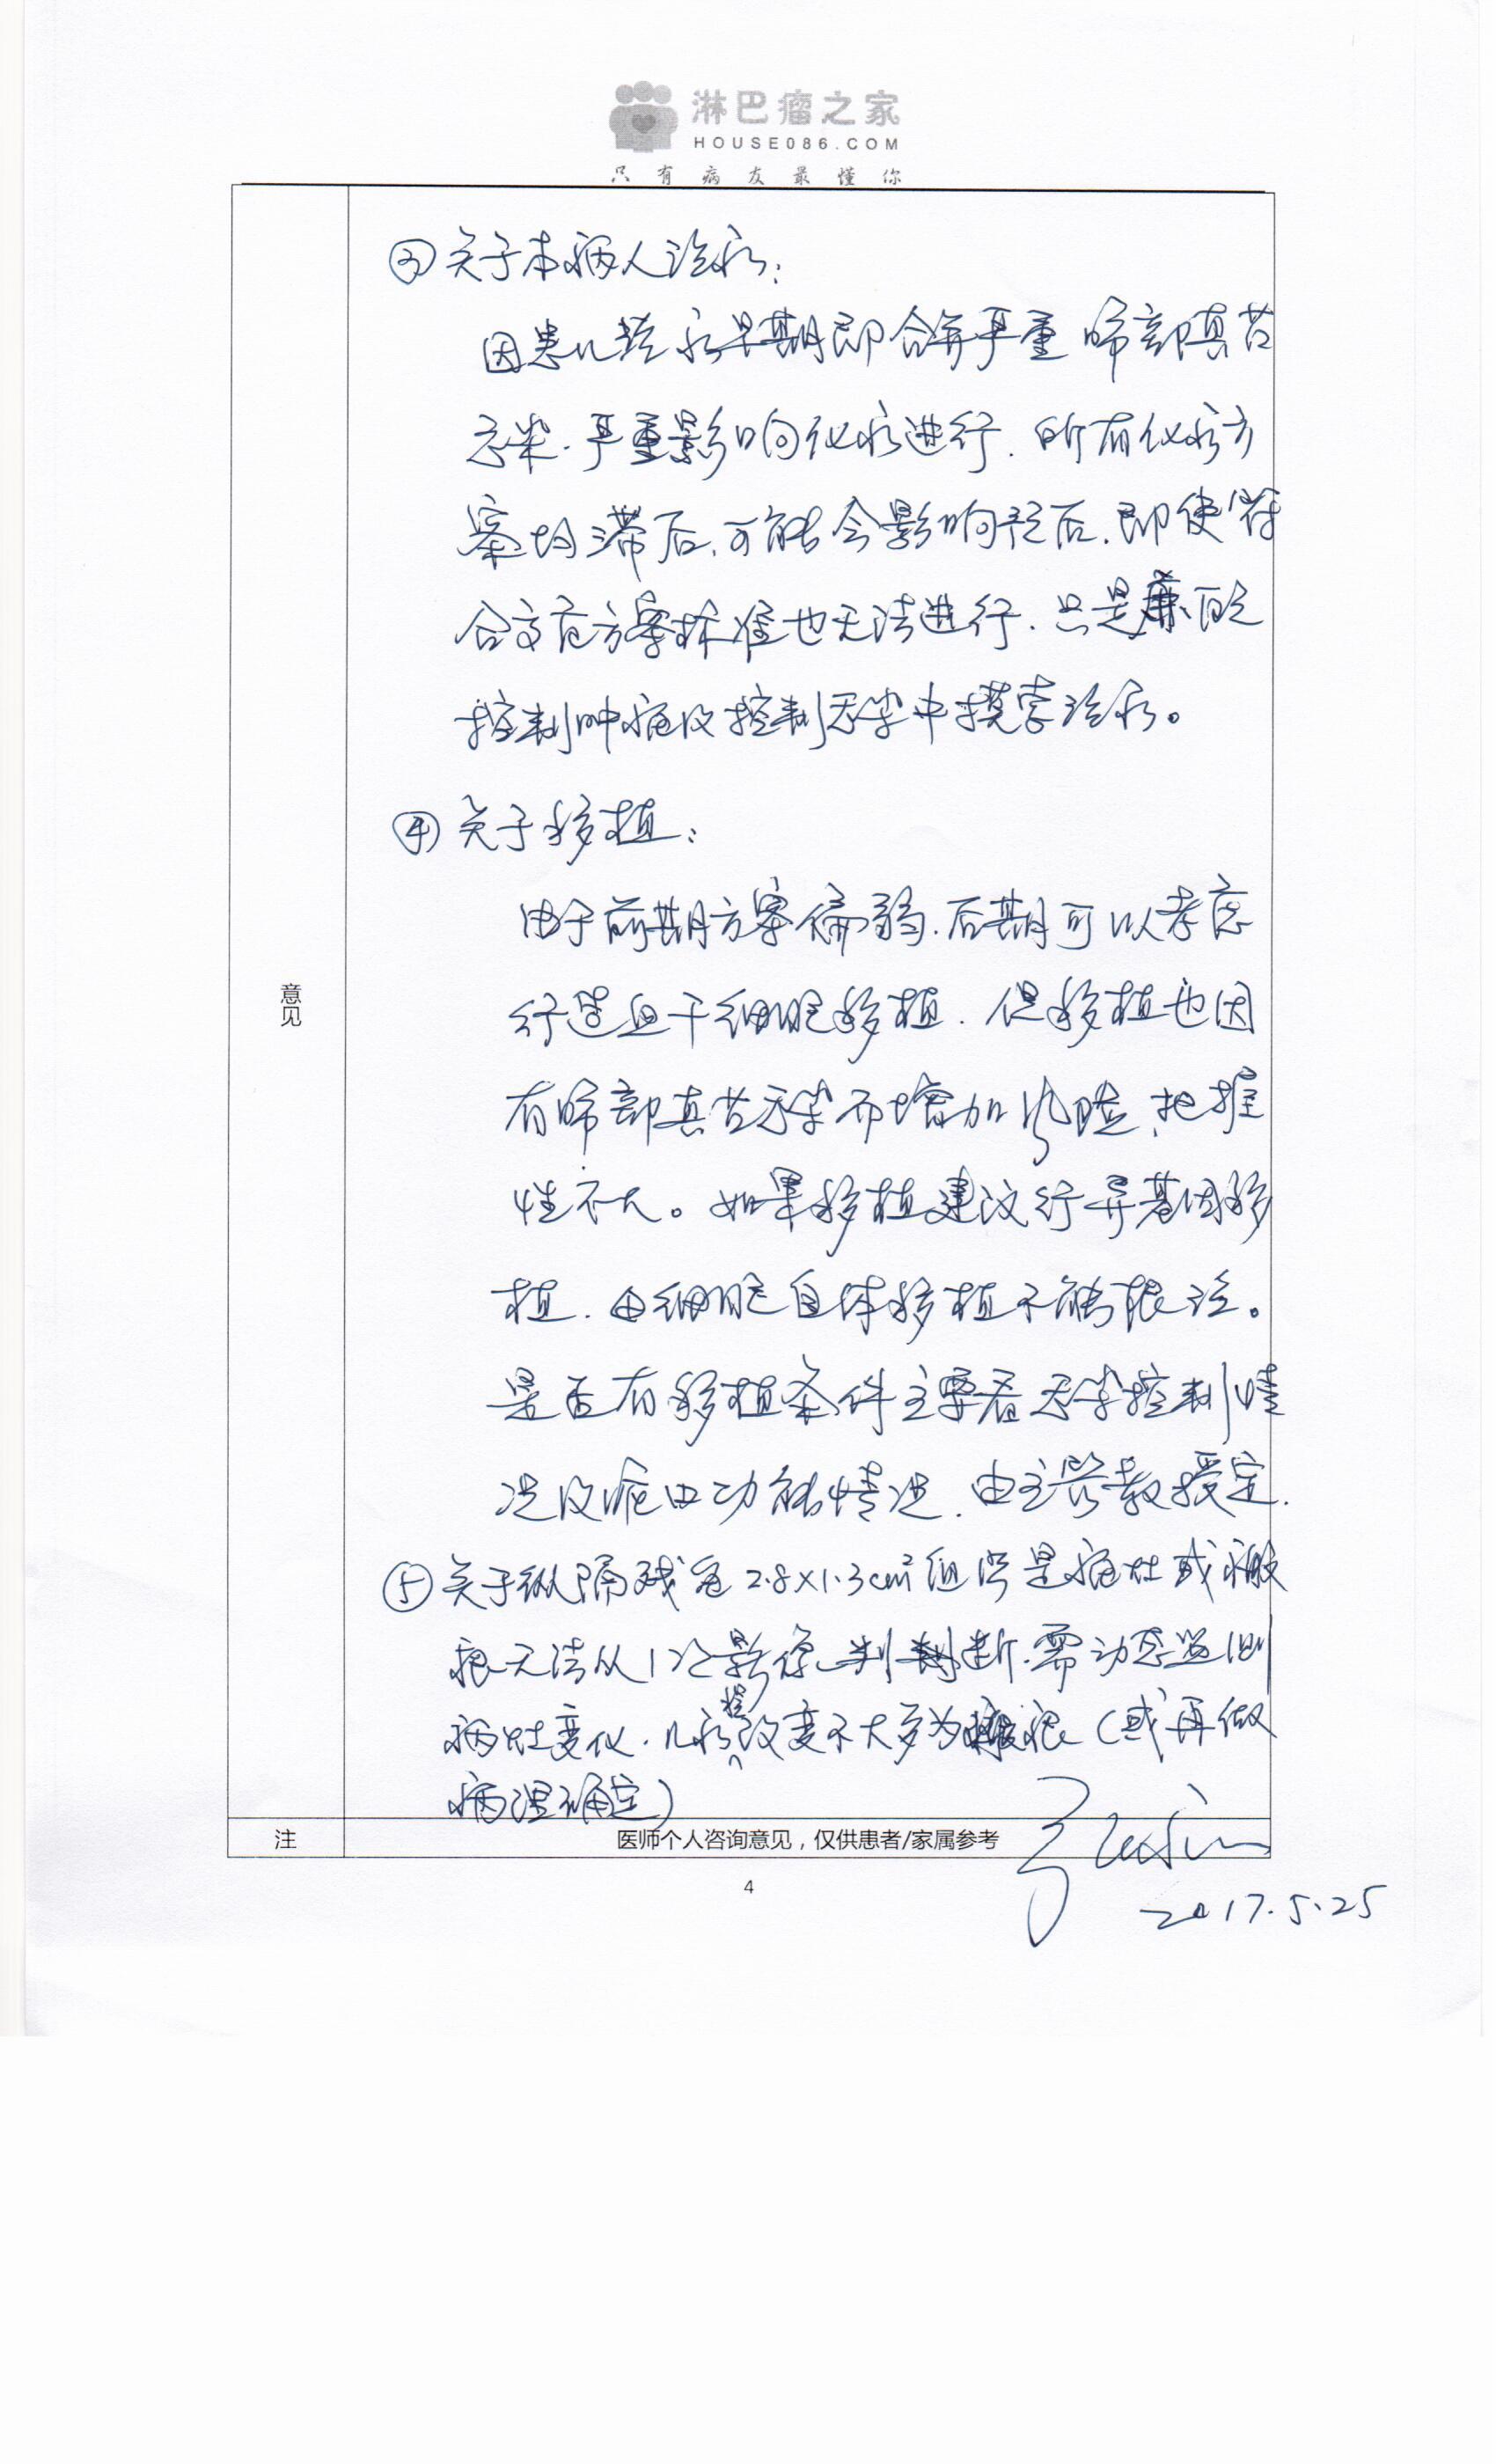 淋巴瘤之家
HOUSE086.COM
只有病友最懂你
③关于本病人治疗:
因患儿 疗早期即合并严重肺部真菌
感染.严重影响化疗进行.所有化疗方
案均滞后,可能会影响预后.即使符
合 方案标准也无法进行.只是兼顾
控制肿瘤及控制感染中摸索治疗。
④关于移植:
由于前期方案偏弱.后期可以考虑
行造血干细胞移植.但移植也因
有肺部真菌感染而增加风险,把握
性不大。如果移植建议行异基因移
植. 细胞自体移植不能根治。
是否有移植条件主要看感染控制情
况及 功能情况.由主 教授定.
⑤关于纵隔残留2.8×1.3cm²组织是瘤灶或瘢
痕无法从1次影像判断.需动态监测
病灶变化. 疗程改变不大多为瘢痕(或再做
病理确定)
意见
注
医师个人咨询意见,仅供患者/家属参考
4
2017.5.25